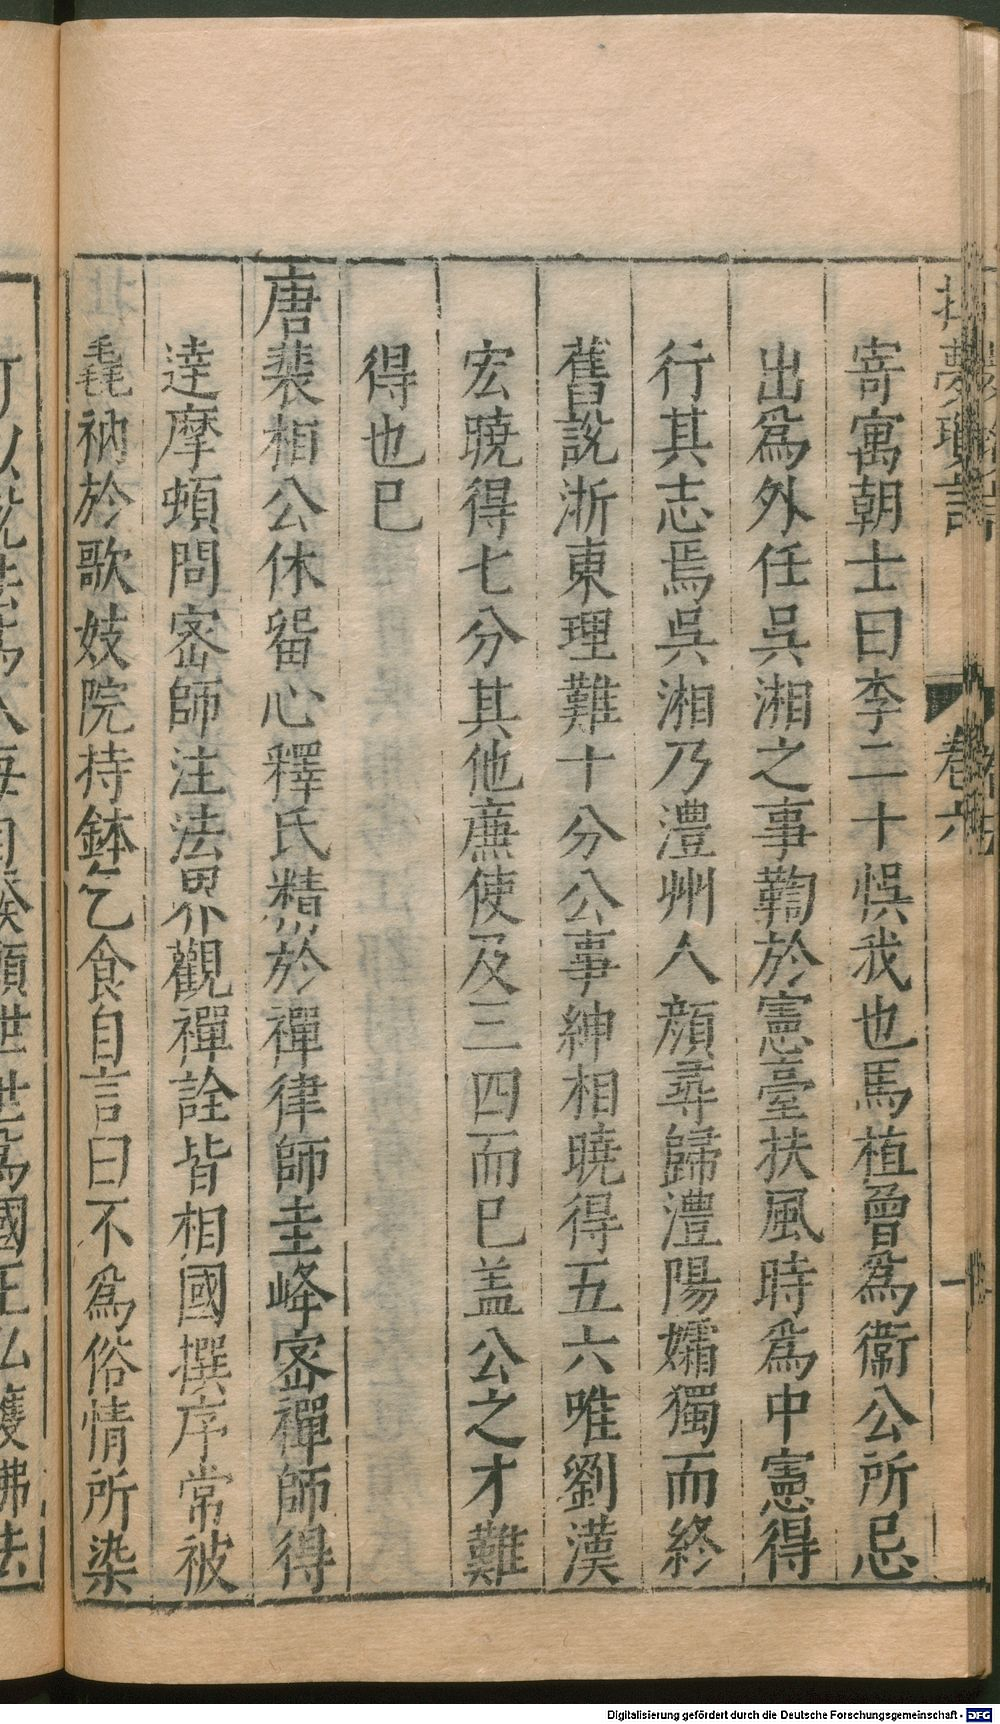 寄寓朝士曰李二十悞我也馬植曾爲衞公所忌
出爲外任吳湘之事鞫於憲臺扶風時爲中憲得
行其志焉吳湘乃澧州人顔尋歸澧陽孀獨而終
舊說浙東理難十分公事紳相曉得五六唯劉漢
宏曉得七分其他亷使及三四而已盖公之才難
得也已
唐裴相公休畱心釋氏精於禪律師圭峰密禪師得
達摩頓問密師注法界觀禪詮皆相國撰序常被
毳衲於歌妓院持鉢乞食自言曰不爲俗情所染
卷六
一
Digitalisierung gefördert durch die Deutsche Forschungsgemeinschaft - DFG